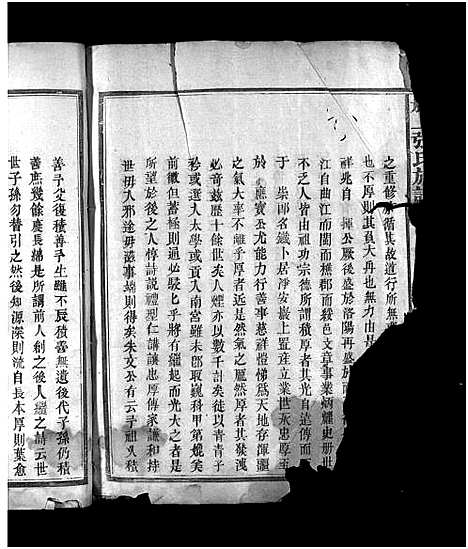 張氏族譜
之重修於循其故道行所無
也不厚則其負大舟也無力由是
祥兆自 揮公厥後盛於洛陽再盛於
江自曲江而閩而樵郡而綏邑文章事業炳耀史冊世
不乏人皆由祖功宗德所謂積厚者其光自遠傳而
于 崇郎名鐵卜居淨安巖上置產立業世永忠厚至
於 應寶公尤能力行善事慈祥愷悌為天地存渾噩
之氣大率不離乎厚者近是然氣之厖然厚者其發洩
必奇茲歷十餘世矣人煙亦以數千計矣或以青青子
衿或選入太學或貢入南宮雖未卽取巍科甲第媲美
前徽但蓄極則通必駸七乎將有繼起而光大之者是
所望於後之人惇詩說禮型仁講讓忠厚傳家謙和持
世毋入邪途毋滋事端則得矣朱文公有云子祖父積
善子父後積善子生雖不辰積善無遺後代子孫仍積
善庶幾餘慶長綿是所謂前人創之後人繼之請云世
世子孫勿替引之然後知源深則流自長本厚則葉愈